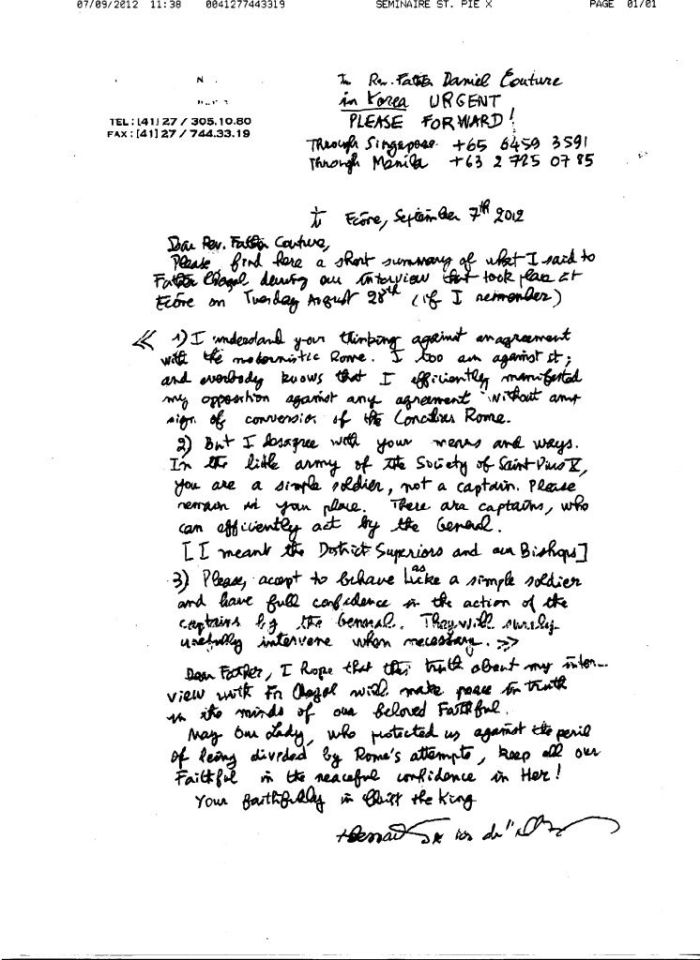 07/09/2012 11:38 0041277443319 SEMINAIRE ST. PIE X PAGE 01/01
To Rev. Father Daniel Couture
in Korea URGENT
PLEASE FORWARD!
TEL : (41) 27 / 305.10.80
FAX : (41) 27 / 744.33.19
Through Singapore +65 6459 3591
Through Manila +63 2 725 07 85
Ecône, September 7th 2012
Dear Rev. Father Couture,
Please find here a short summary of what I said to
Father Chazal during our interview that took place at
Ecône on Tuesday August 28th (if I remember)
« 1) I understand your thinking against an agreement
with the modernistic Rome. I too am against it;
and everbody knows that I efficiently manifested
my opposition against any agreement without any
sign of conversion of the Conciliar Rome.
2) But I disagree with your means and ways.
In the little army of the Society of Saint Pius X,
you are a simple soldier, not a captain. Please
remain at your place. There are captains, who
can efficiently act by the General.
[I meant the District Superiors and our Bishops]
3) Please, accept to behave as like a simple soldier
and have full confidence in the action of the
captains by the General. They will surely
usefully intervene when necessary. »
Dear Father, I hope that this truth about my inter-
view with Fr Chazal will make peace in truth
in the minds of our beloved Faithful.
May Our Lady, who protected us against the peril
of being divided by Rome's attempts, keep all our
Faithful in the peaceful confidence in Her!
Your faithfully in Christ the King